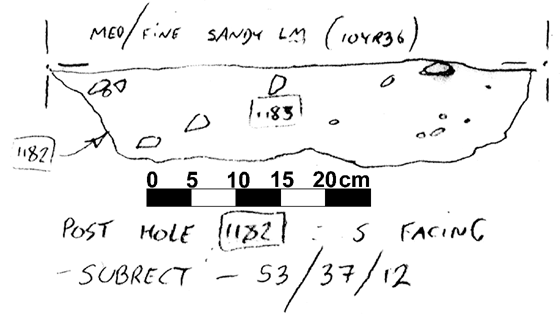 MED/FINE SANDY LM (10YR36)
1183
1182
0 5 10 15 20cm
POST HOLE 1182 : S FACING
- SUBRECT - 53/37/12